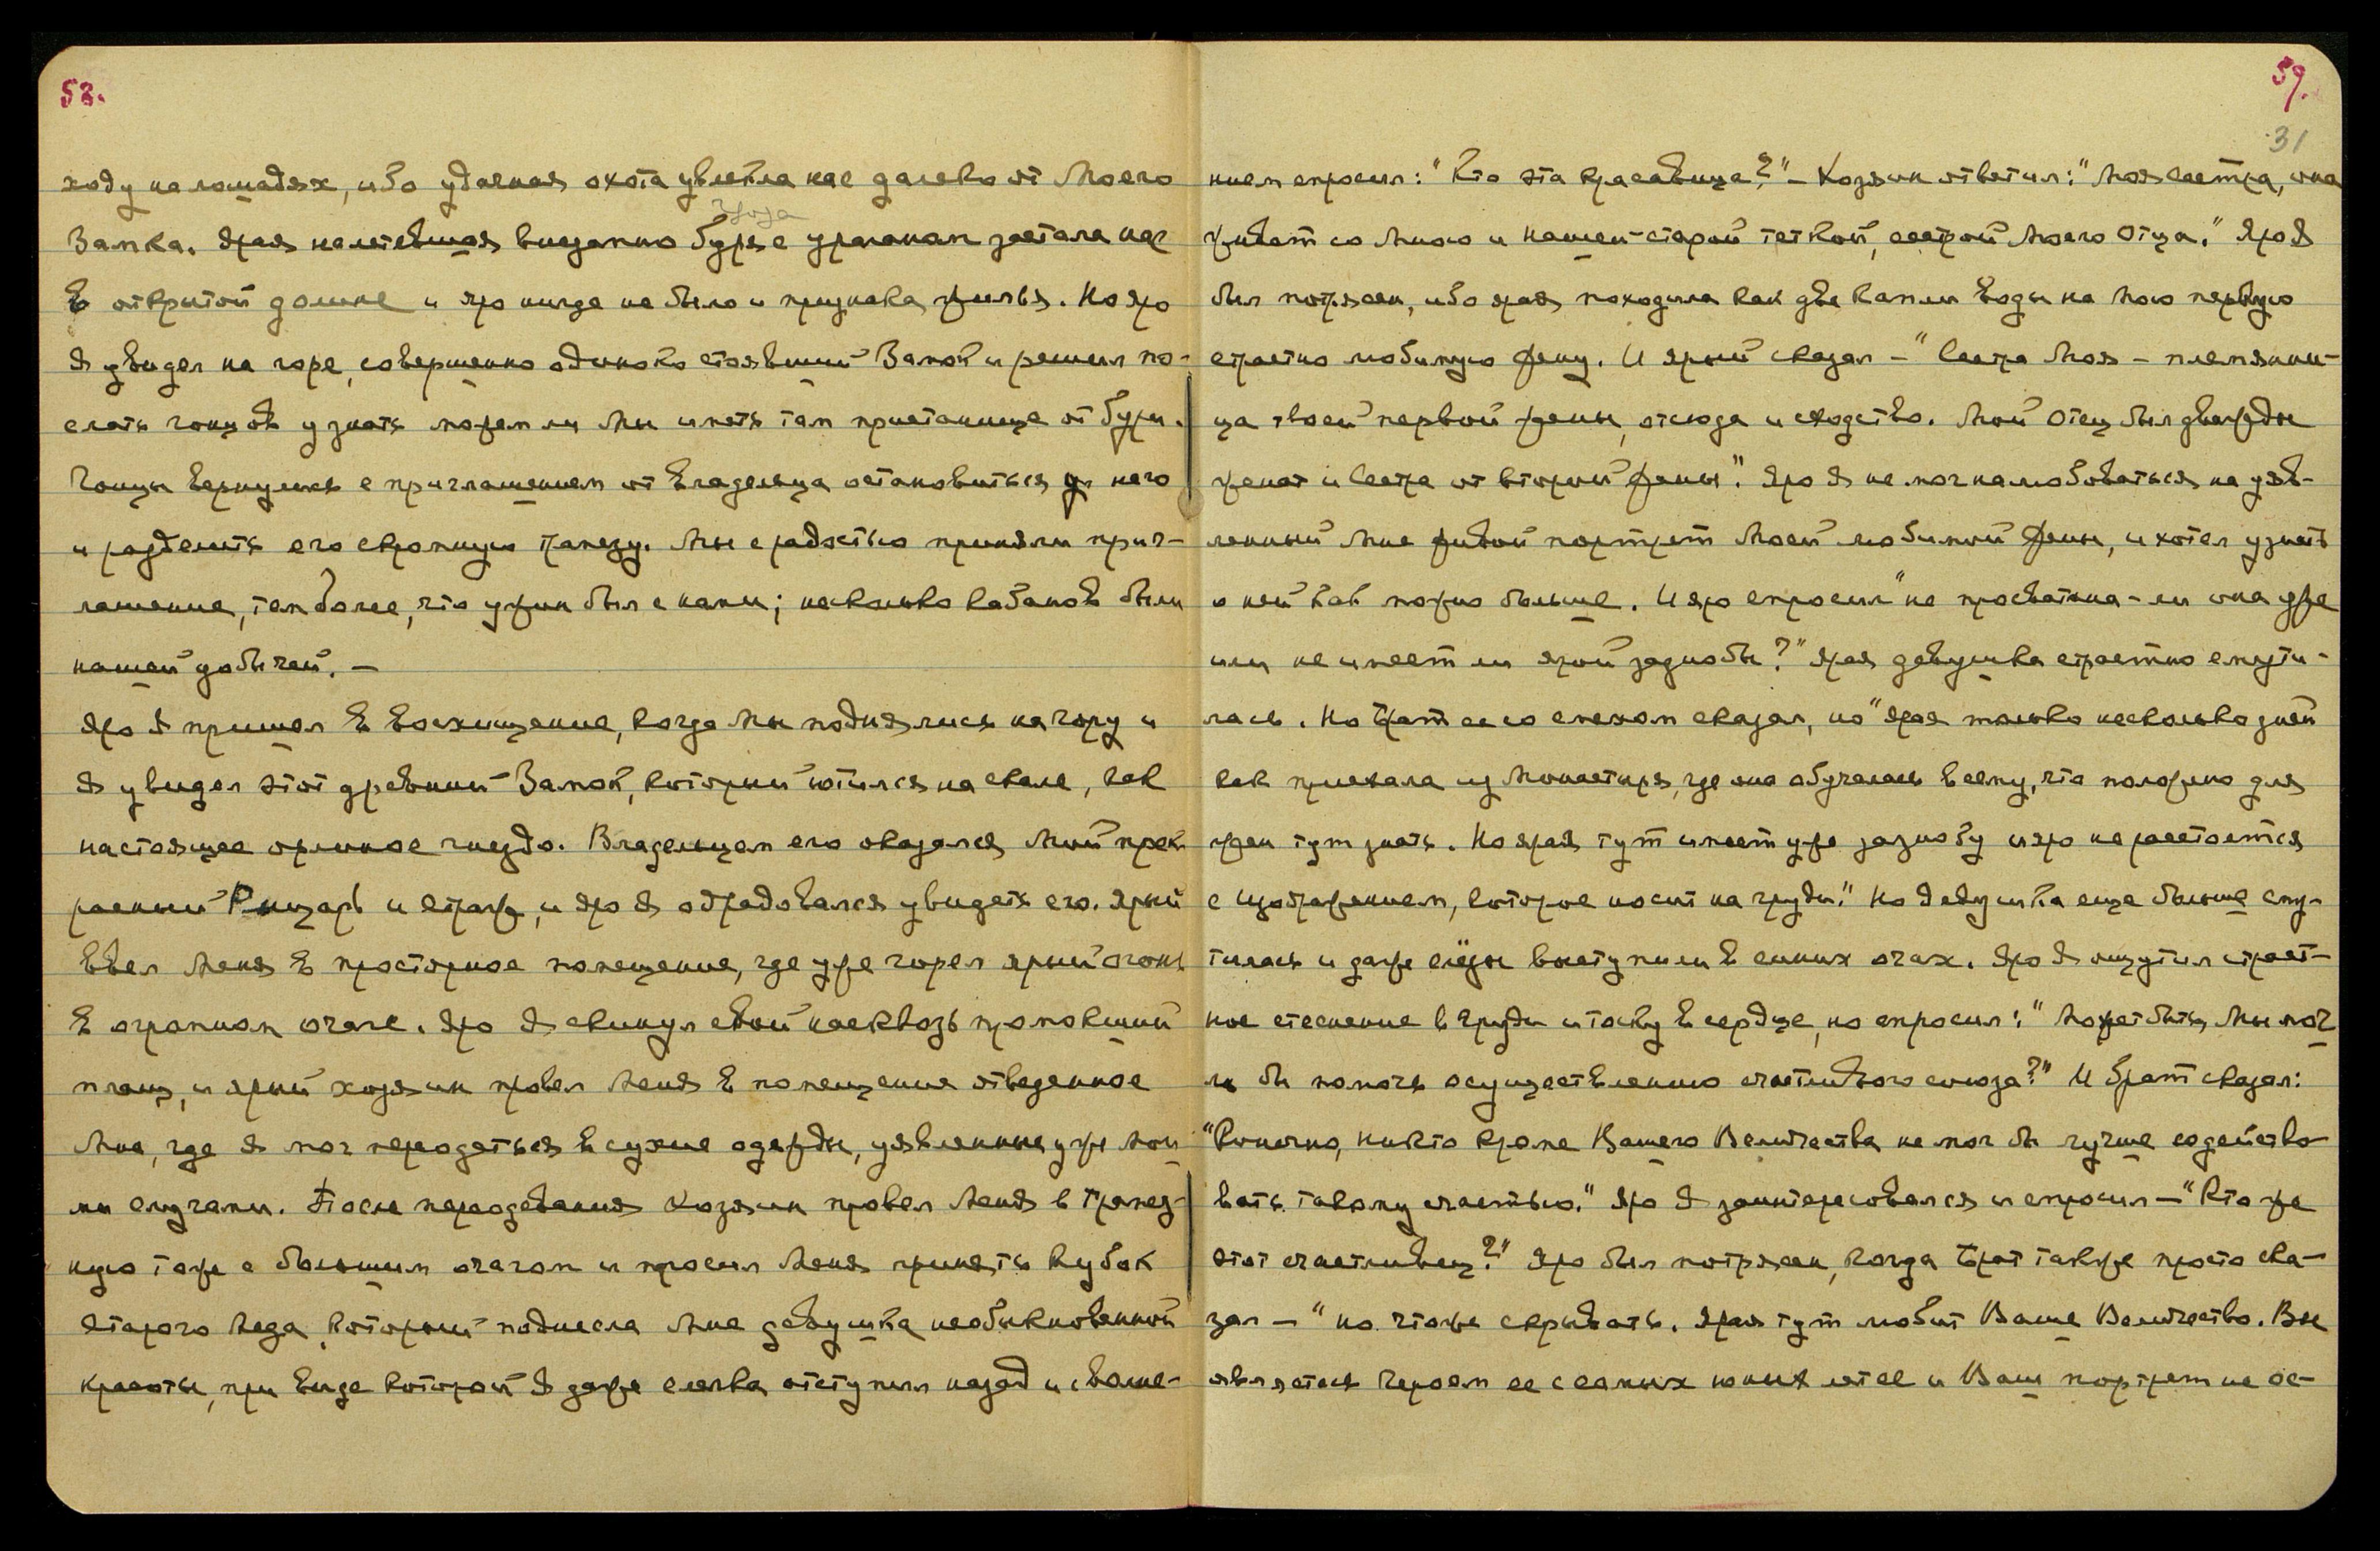 58.
ходу на лошадях, ибо удачная охота увлекла нас далеко от Моего
гроза
Замка. Ярая налетевшая внезапно буря с ураганом застала нас
в открытой долине и яро нигде не было и признака жилья. Но яро
Я увидел на горе, совершенно одиноко стоявший Замок и решил по-
слать гонцов узнать можем ли Мы иметь там пристанище от бури.
Гонцы вернулись с приглашением от Владельца остановиться у него
и разделить его скромную трапезу. Мы с радостью приняли приг-
лашение, тем более, что ужин был с нами; несколько кабанов были
нашей добычей. —
Яро Я пришел в восхищение, когда Мы поднялись на гору и
Я увидел этот древний Замок, который ютился на скале, как
настоящее орлиное гнездо. Владельцем его оказался Мой прек-
расный Рыцарь и страж, и яро Я обрадовался увидеть его. Ярый
ввел Меня в просторное помещение, где уже горел ярый огонь
в огромном очаге. Яро Я скинул свой насквозь промокший
плащ, и ярый хозяин провел Меня в помещение отведенное
Мне, где Я мог переодеться в сухие одежды, уявленные уже Мои-
ми слугами. После переодевания хозяин провел Меня в трапез-
ную тоже с большим очагом и просил Меня принять кубок
старого меда, который поднесла Мне девушка необыкновенной
красоты, при виде которой Я даже слегка отступил назад и с волне-
59.
31
нием спросил: "Кто эта красавица?" — Хозяин ответил: "Моя сестра, она
живет со Мною и нашей старой теткой, сестрой Моего Отца." Яро Я
был потрясен, ибо ярая походила как две капли воды на Мою первую
страстно любимую жену. И ярый сказал — "Сестра Моя — племянни-
ца твоей первой жены, отсюда и сходство. Мой Отец был дважды
женат и Сестра от второй жены". Яро Я не мог налюбоваться на уяв-
ленный Мне живой портрет Моей любимой жены, и хотел узнать
о ней как можно больше. И яро спросил "не просватана-ли она уже
или не имеет ли ярой зазнобы?" Ярая девушка страстно смути-
лась. Но брат ее со смехом сказал, но "ярая только несколько дней
как приехала из Монастыря, где она обучалась всему, что положено для
жен тут знать. Но ярая тут имеет уже зазнобу и яро не расстается
с изображением, которое носит на груди." Но девушка еще больше сму-
тилась и даже слёзы выступили в синих очах. Яро Я ощутил страст-
ное стеснение в груди и тоску в сердце, но спросил: "Может быть, Мы мог
ли бы помочь осуществлению счастливого союза?" И брат сказал:
"Конечно, никто кроме Вашего Величества не мог бы лучше содейство-
вать такому счастью." Яро Я заинтересовался и спросил — "Кто же
этот счастливец?" Яро был потрясен, когда брат также просто ска-
зал — "но что же скрывать. Ярая тут любит Ваше Величество. Вы
являетесь Героем ее с самых юных лет ее и Ваш портрет не ос-